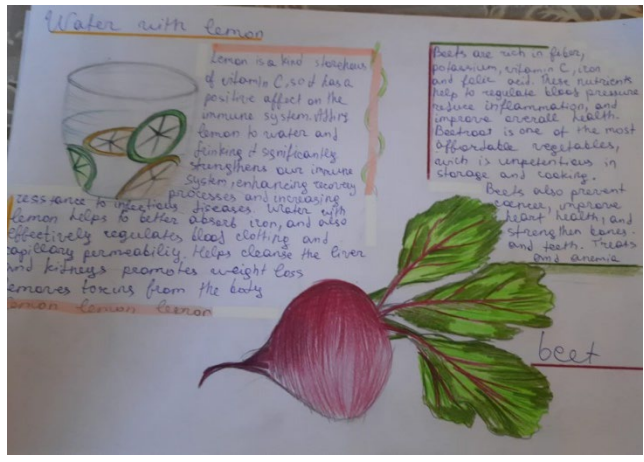 Water with lemon
Lemon is a kind storehous
of vitamin C, so it has a
positive affect on the
immune system. Adding
lemon to water and
drinking it significantly
strengthens our immune
system, enhancing recovery
processes and increasing
resistance to infectious diseases. Water with
lemon helps to better absorb iron, and also
effectively regulates blood clotting and
capillary permeability. Helps cleanse the liver
and kidneys promotes weight loss
removes toxins from the body
lemon lemon lemon
Beets are rich in fiber,
potassium, vitamin C, iron
and folic acid. These nutrients
help to regulate blood pressure
reduce inflammation, and
improve overall health.
Beetroot is one of the most
affordable vegetables,
is unpretentious in
storage and cooking.
Beets also prevent
cancer, improve
heart health, and
strengthen bones
and teeth. Treats
anemia
beet